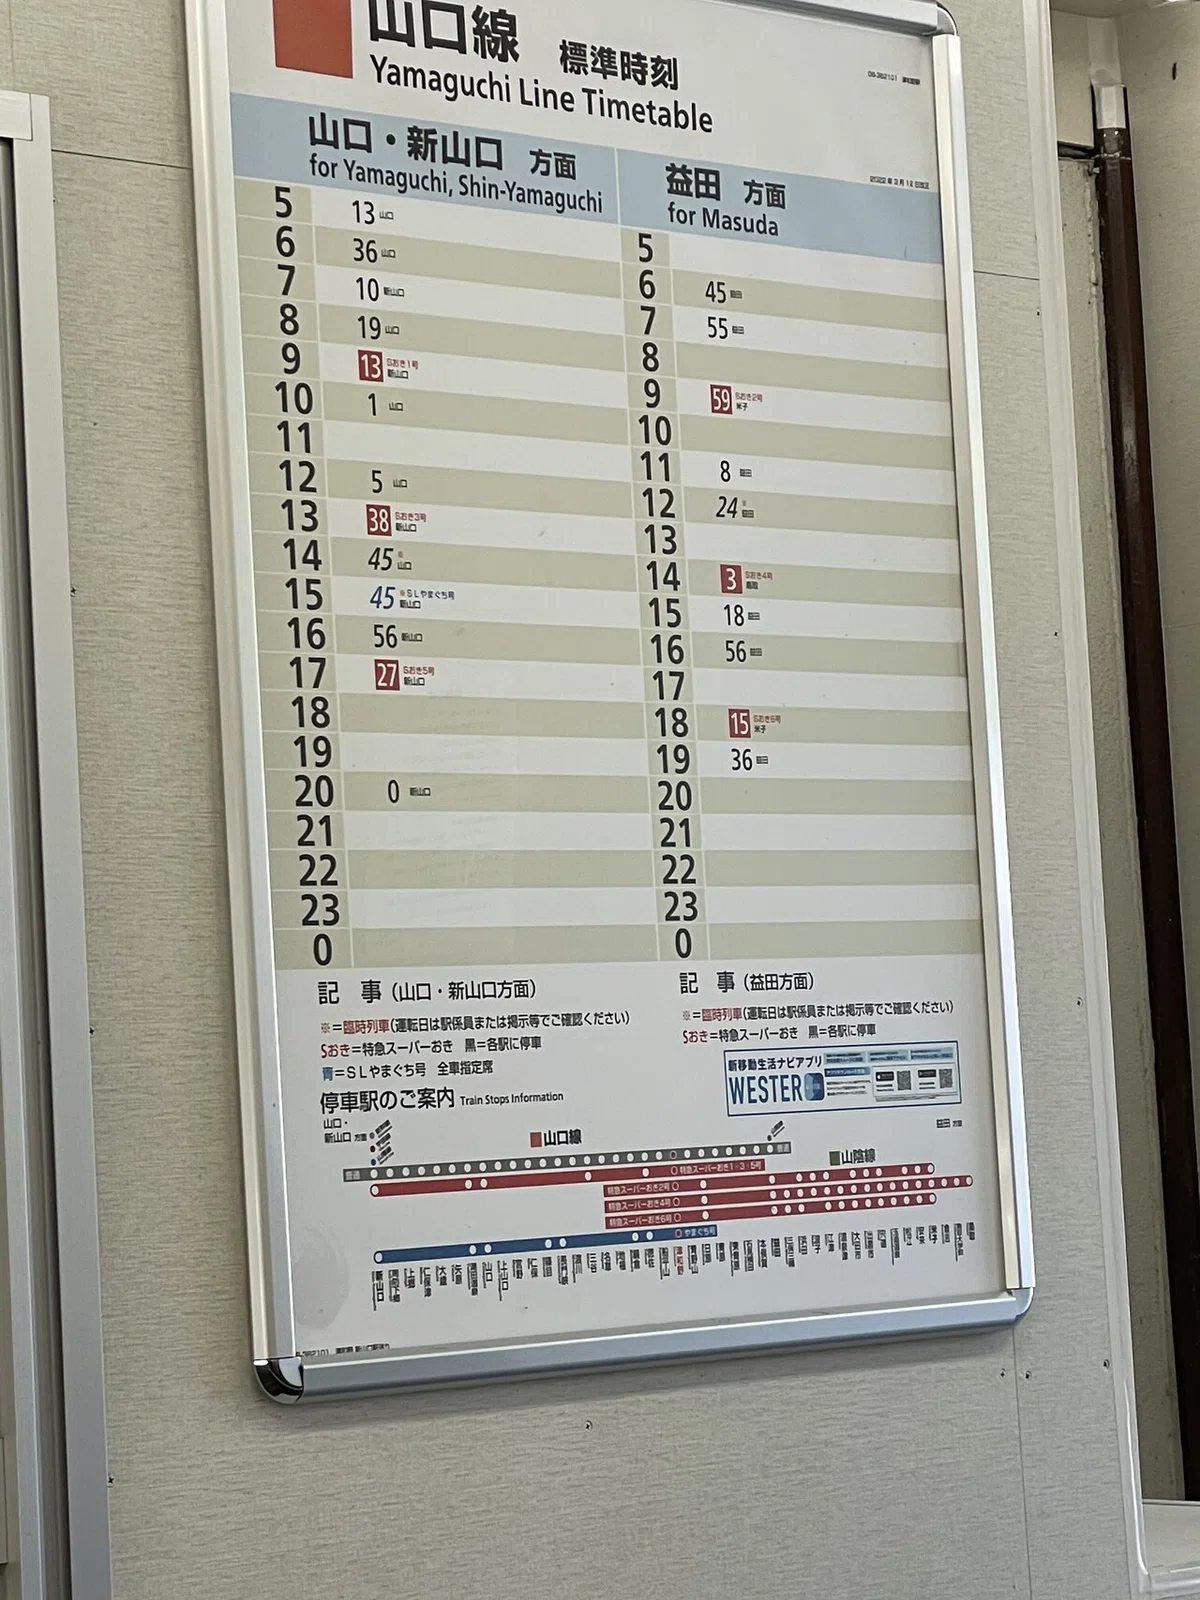 山口線 標準時刻
Yamaguchi Line Timetable
2022年3月12日改正
山口・新山口 方面
for Yamaguchi, Shin-Yamaguchi
5 13 山口
6 36 山口
7 10 新山口
8 19 山口
9 13 Sおき1号 新山口
10 1 山口
11
12 5 山口
13 38 Sおき3号 新山口
14 45 ※ 山口
15 45 ※SLやまぐち号 新山口
16 56 新山口
17 27 Sおき5号 新山口
18
19
20 0 新山口
21
22
23
0
益田 方面
for Masuda
5
6 45 益田
7 55 益田
8
9 59 Sおき2号 米子
10
11 8 益田
12 24 ※ 益田
13
14 3 Sおき4号 鳥取
15 18 益田
16 56 益田
17
18 15 Sおき6号 米子
19 36 益田
20
21
22
23
0
記 事（山口・新山口方面）
※＝臨時列車（運転日は駅係員または掲示等でご確認ください）
Sおき＝特急スーパーおき 黒＝各駅に停車
青＝SLやまぐち号 全車指定席
記 事（益田方面）
※＝臨時列車（運転日は駅係員または掲示等でご確認ください）
Sおき＝特急スーパーおき 黒＝各駅に停車
新移動生活ナビアプリ
WESTER
停車駅のご案内 Train Stops Information
山口・
新山口 方面
益田 方面
山口線
山陰線
普通
普通
特急スーパーおき1・3・5号
特急スーパーおき2号
特急スーパーおき4号
特急スーパーおき6号
やまぐち号
新山口
山口
津和野